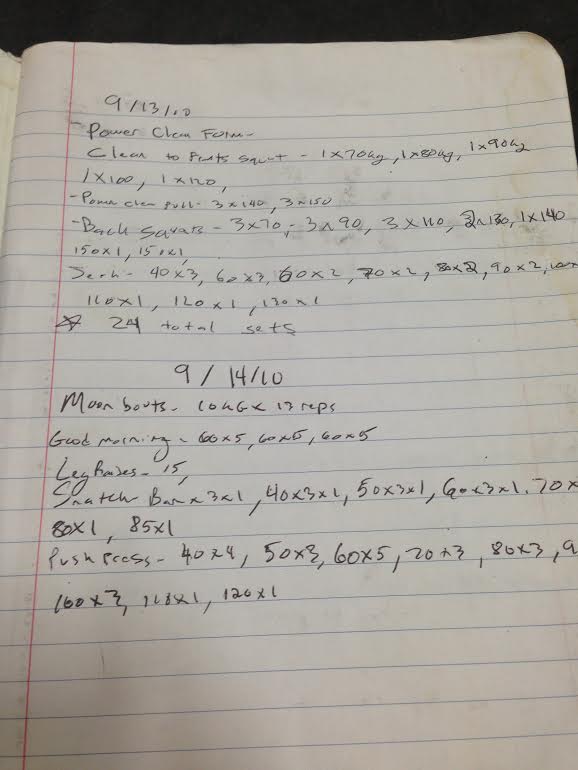 9/13/10
- Power Clean Form -
Clean to Front Squat - 1x70kg, 1x80kg, 1x90kg
1x100, 1x120,
- Power clean pull - 3x140, 3x150
- Back Squats - 3x70, 3x90, 3x110, 2x130, 1x140
150x1, 150x1,
Jerk - 40x3, 60x3, 60x2, 70x2, 80x2, 90x2, 100x
110x1, 120x1, 130x1
24 total sets
9/14/10
Moon bouts - x 13 reps
Good morning - 60x5, 60x5, 60x5
Leg Raises - 15,
Snatch Bar x3x1, 40x3x1, 50x3x1, 60x3x1, 70x
80x1, 85x1
Push Press - 40x4, 50x3, 60x5, 70x3, 80x3, 9
100x3, 110x1, 120x1